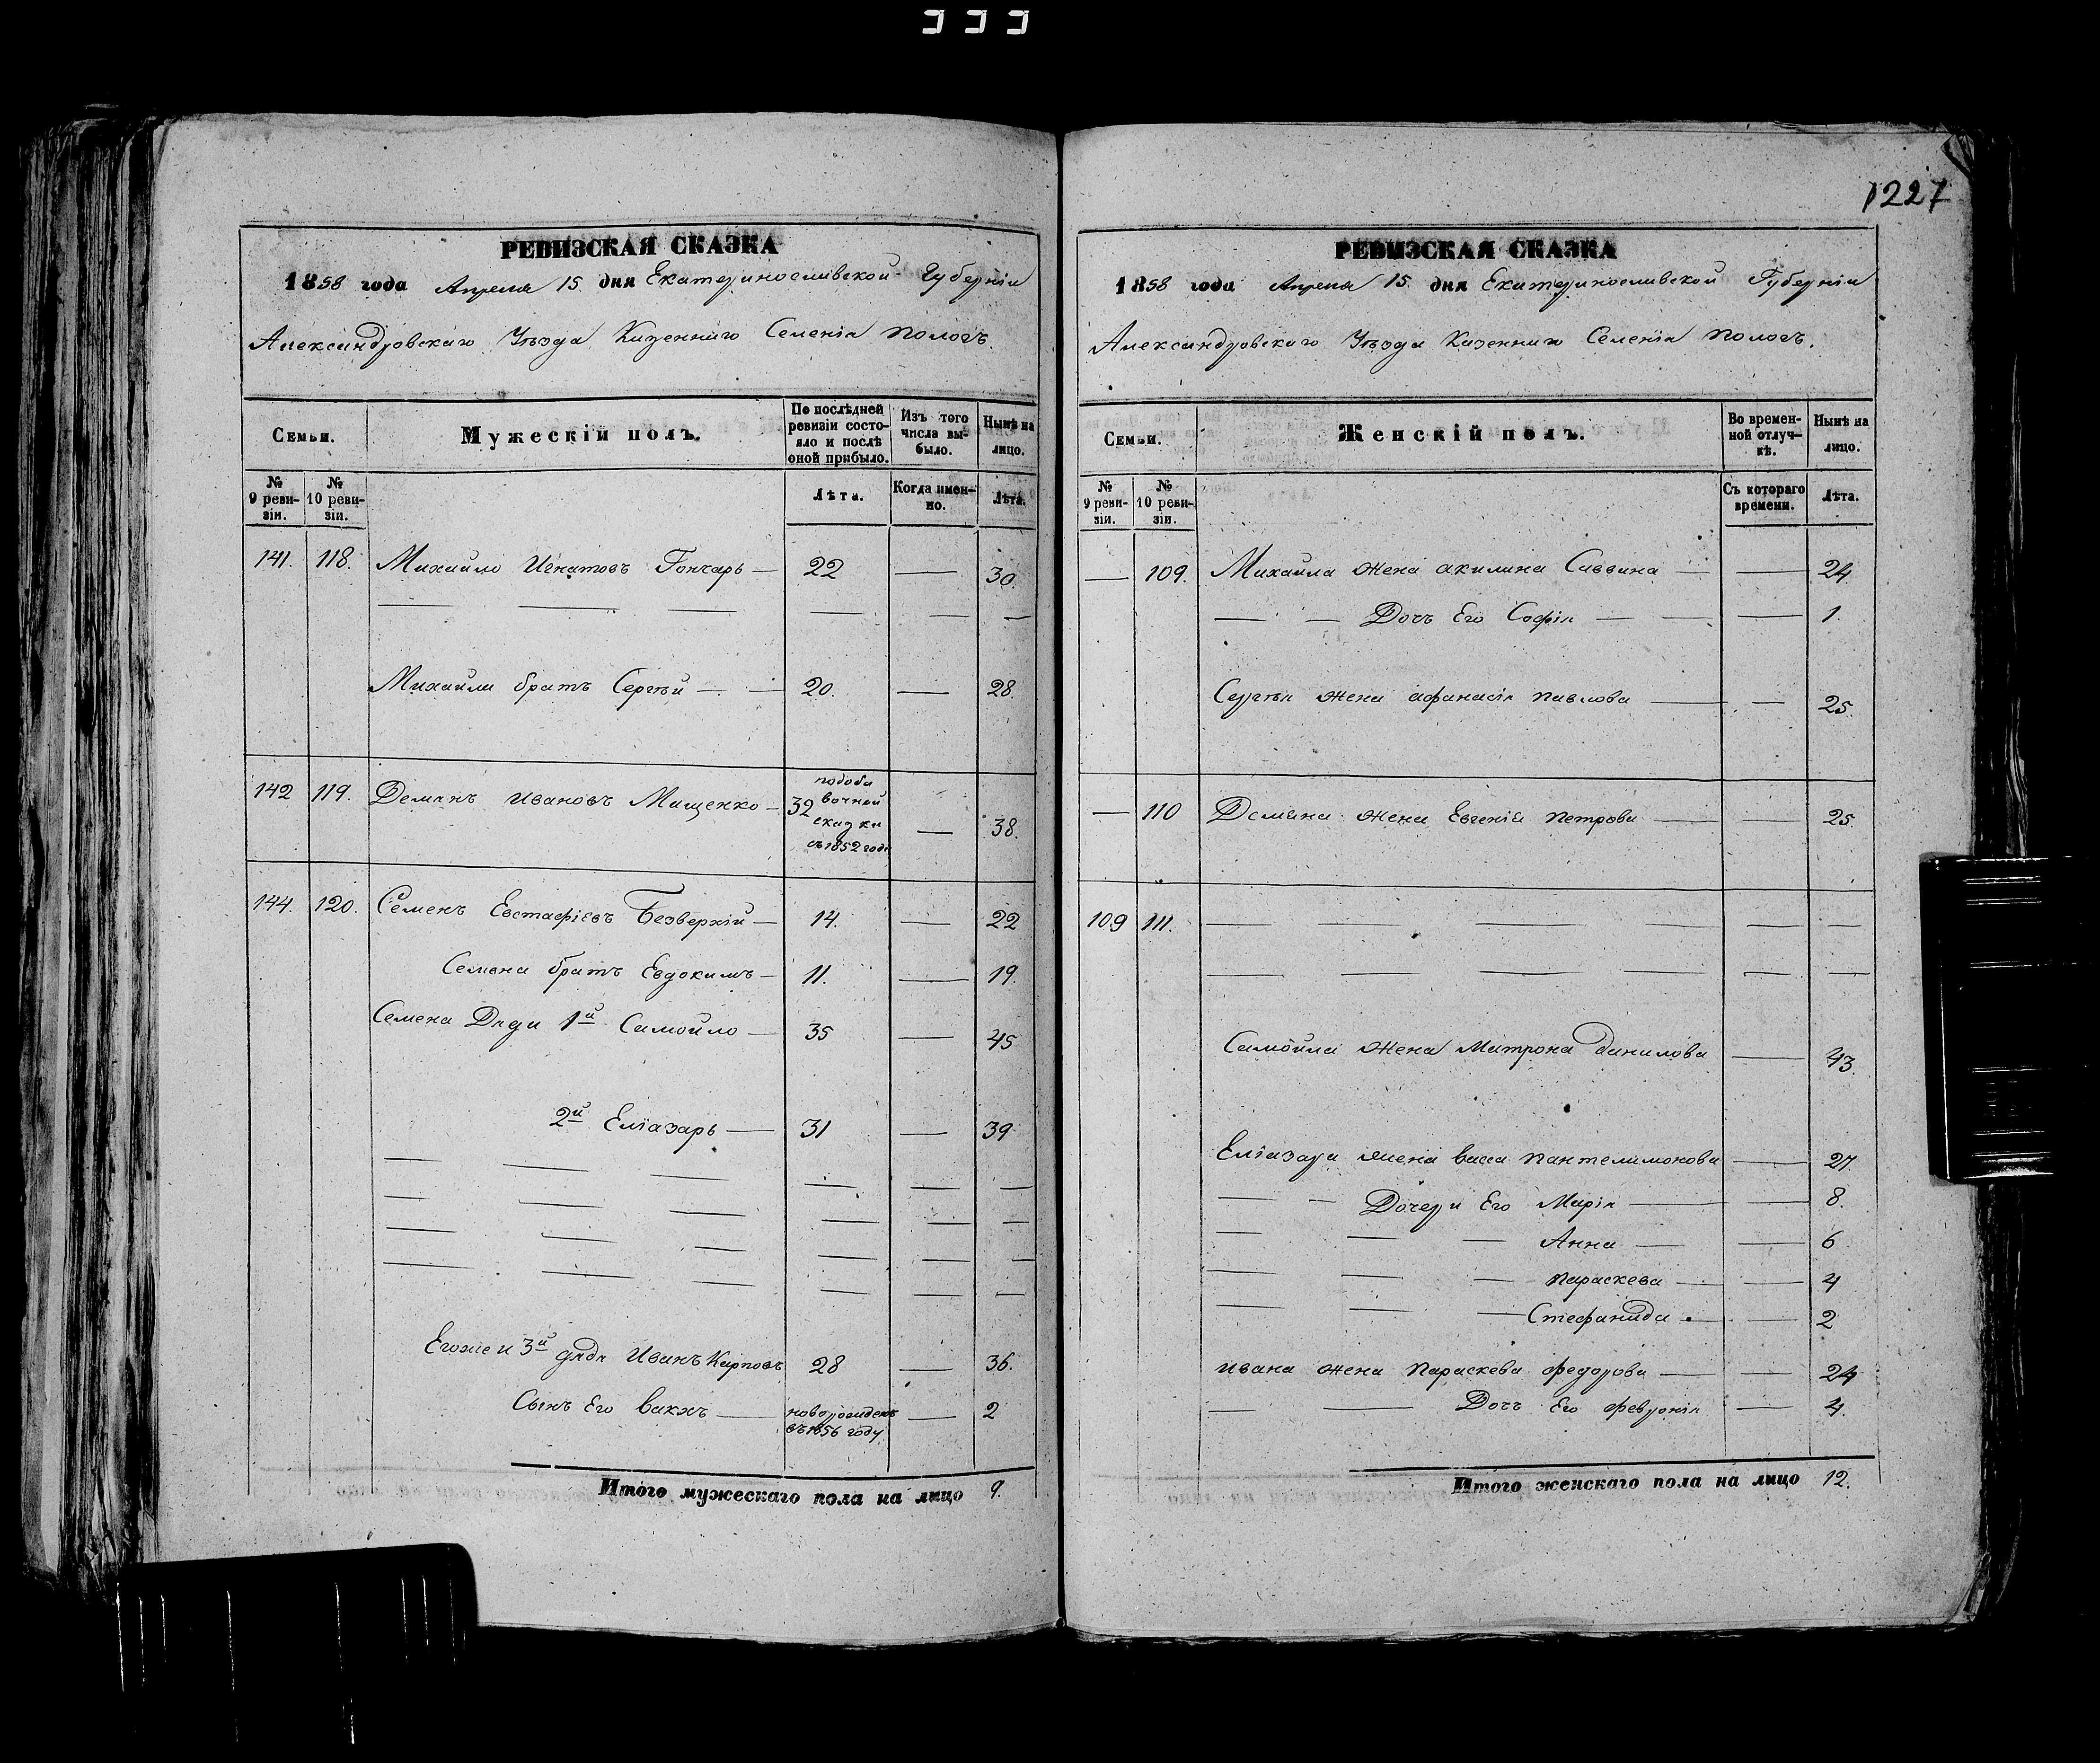 1227
РЕВИЗСКАЯ СКАЗКА
1858 года Апреля 15. дня Екатеринославской Губерніи
Александровскаго Уѣзда Казеннаго Селенія Пологъ.
Семьи.
Мужескій полъ.
По послѣдней ревизіи состояло и послѣ оной прибыло.
Изъ того числа выбыло.
Нынѣ на лицо.
№ 9 ревизіи.
№ 10 ревизіи.
Лѣта.
Когда именно.
Лѣта.
141. 118. Михайло Игнатовъ Гончарь — 22 — 30.
Михайли братъ Сергѣй — 20. — 28.
142 119. Демянъ Ивановъ Мищенко — 32 подоба вочной сказки съ 1852 года — 38.
144. 120. Семенъ Евстафіевъ Безверхій — 14. — 22
Семена братъ Евдокимъ — 11. — 19.
Семена Дяди 1й Самойло — 35 — 45
2й Еліазарь — 31 — 39
Егоже и 3й дядя Иванъ Карповъ 28 — 36.
Сынъ Его Вакхъ — новорожденъ въ 1856 году — 2
Итого мужескаго пола на лицо 9.
РЕВИЗСКАЯ СКАЗКА
1858 года Апреля 15. дня Екатеринославской Губерніи
Александровскаго Уѣзда Казеннаго Селенія Пологъ.
Семьи.
Женскій полъ.
Во временной отлучкѣ.
Нынѣ на лицо.
№ 9 ревизіи.
№ 10 ревизіи.
Съ котораго времени.
Лѣта.
— 109. Михайла жена акилина Саввина — 24.
Дочь Его Софія — 1.
Сергѣя жена афанасія павлова — 25.
— 110 Демяна жена Евгенія петрова — 25.
109 111.
Самойла жена Матрона Данилова — 43.
Еліазара жена васса пантелимонова — 27.
Дочери Его Марія — 8.
Анна — 6
параскева — 4
Стефанида — 2
ивана жена параскева федорова — 24
Дочь Его феvронія — 4.
Итого женскаго пола на лицо 12.